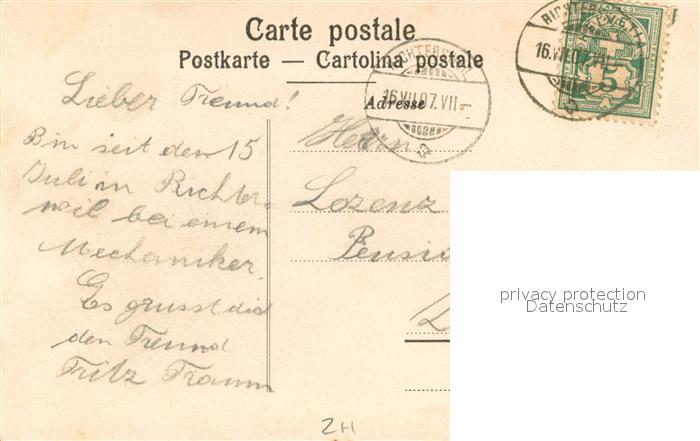 Carte postale
Postkarte — Cartolina postale
RICHTERS
16.VII.07.VII-
HELVETIA
5
Adresse
Lieber Freund!
Bin seit den 15
Juli in Richters-
wil bei einem
Mechaniker.
Es grusst dich
den Freund
Fritz
Herrn
Lozenz
Pensio
privacy protection
Datenschutz
ZH